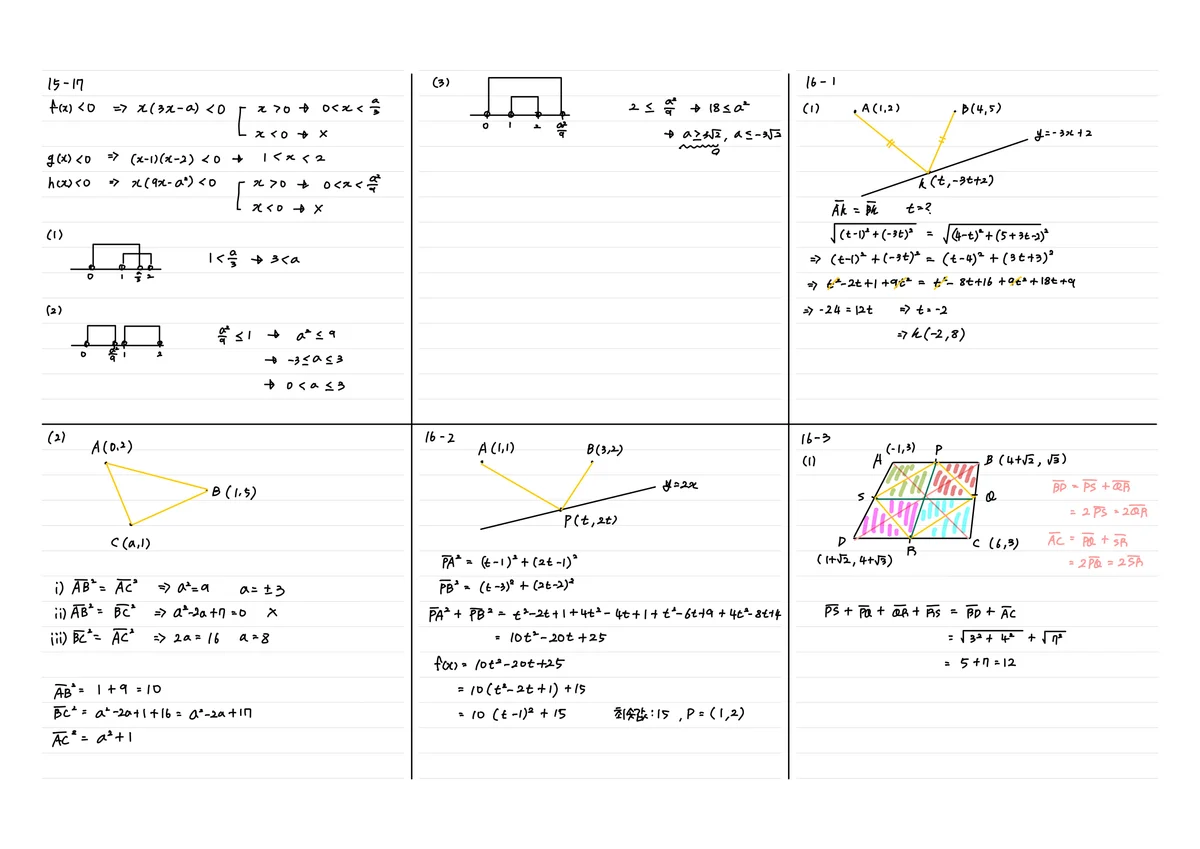 15-17
f(x)<0 ⇒ x(3x-a)<0 [ x>0 → 0<x<a/3
x<0 → ×
g(x)<0 ⇒ (x-1)(x-2)<0 → 1<x<2
h(x)<0 ⇒ x(9x-a²)<0 [ x>0 → 0<x<a²/9
x<0 → ×
(1)
1<a/3 → 3<a
0 1 a/3 2
(2)
a²/9 ≤ 1 → a² ≤ 9
0 a²/9 1 2
→ -3≤a≤3
→ 0<a≤3
(3)
2 ≤ a²/9 → 18≤a²
0 1 2 a²/9
→ a≥3√2, a≤-3√2
16-1
(1) A(1,2) B(4,5)
y=-3x+2
K(t,-3t+2)
AK = BK t=?
√(t-1)²+(-3t)² = √(4-t)²+(5+3t-2)²
⇒ (t-1)²+(-3t)² = (t-4)²+(3t+3)²
⇒ t²-2t+1+9t² = t²-8t+16+9t²+18t+9
⇒ -24=12t ⇒ t=-2
⇒ K(-2,8)
(2)
A(0,2)
B(1,5)
C(a,1)
i) AB² = AC² ⇒ a²=9 a=±3
ii) AB² = BC² ⇒ a²-2a+7=0 ×
iii) BC² = AC² ⇒ 2a=16 a=8
AB² = 1+9 =10
BC² = a²-2a+1+16 = a²-2a+17
AC² = a²+1
16-2
A(1,1) B(3,2)
y=2x
P(t,2t)
PA² = (t-1)²+(2t-1)²
PB² = (t-3)²+(2t-2)²
PA²+PB² = t²-2t+1+4t²-4t+1+t²-6t+9+4t²-8t+4
= 10t²-20t+25
f(x) = 10t²-20t+25
= 10(t²-2t+1)+15
= 10(t-1)²+15 최솟값:15, P=(1,2)
16-3
(1) A (-1,3) P B (4+√2, √3)
S Q
D R C (6,3)
(1+√2, 4+√3)
BD = PS + QR
= 2PS = 2QR
AC = PQ + SR
= 2PQ = 2SR
PS+PQ+QR+RS = BD+AC
= √3²+4² + √7²
= 5+7=12